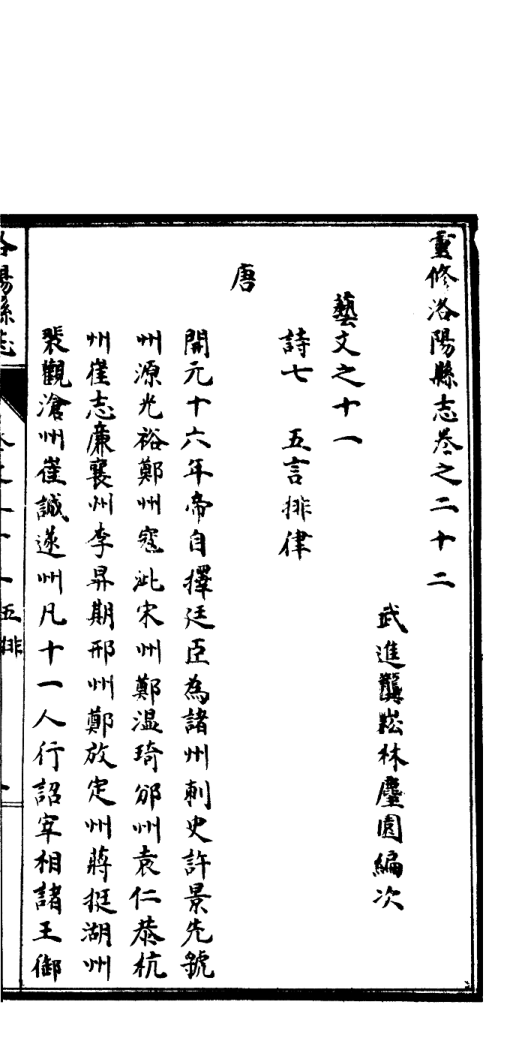 重修洛陽縣志卷之二十二
武進龔崧林麈園編次
藝文之十一
詩七　五言排律
唐
開元十六年帝自擇廷臣為諸州刺史許景先虢
州源光裕鄭州寇泚宋州鄭温琦邠州袁仁恭杭
州崔志廉襄州李昇期邢州鄭放定州蔣挺湖州
裴觀滄州崔誠遂州凡十一人行詔宰相諸王御
洛陽縣志
卷之二十二　五排